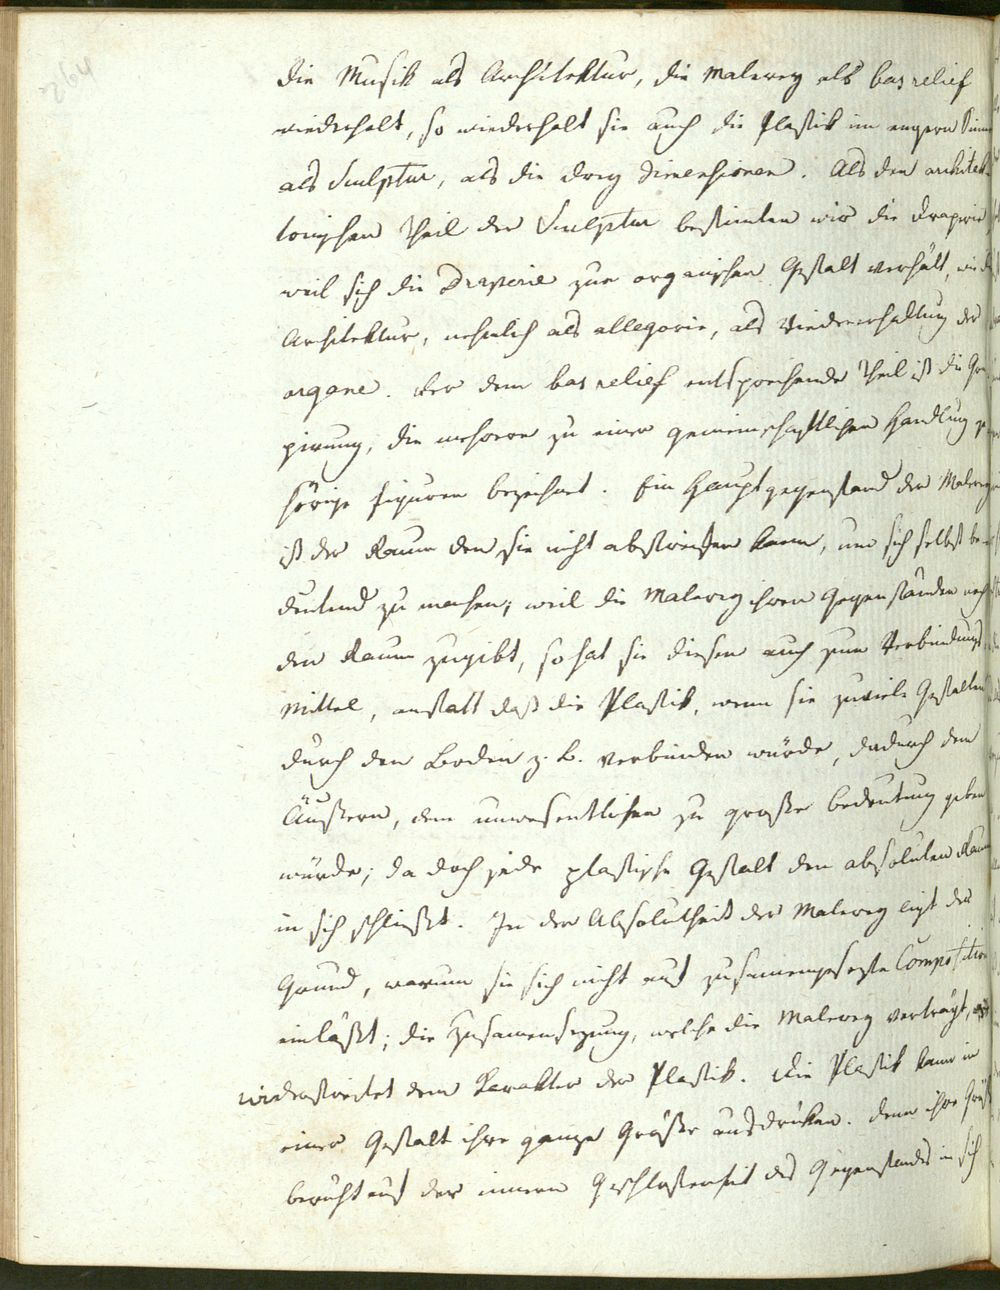 264
die Musik als Architektur, die Malerey als bas relief
wiederholt, so wiederholt sie auch die Plastik im engern Sinne
als Sculptur, als die drey Dimensionen. Als den architek-
tonischen Theil der Sculptur bestimten wir die Draperie
weil sich die Draperie zur organischen Gestalt verhält, wie die
Architektur, nehmlich als allegorie, als Wiedererhaltung der
organe. Der dem bas relief entsprechende Theil ist die Gru-
pirung, die mehrere zu einer gemeinschaftlichen Handlung ge-
hörige Figuren bezeichnet. Ein Hauptgegenstand der Malerey
ist der Raum den sie nicht abstreifen kann, um sich selbst be-
deutend zu machen; weil die Malerey ihren Gegenständen noch
den Raum zugibt, so hat sie diesen auch zum Verbindungs
Mittel, anstatt daß die Plastik, wenn sie zuviele Gestalten
durch den Boden z. B. verbinden würde, dadurch dem
Äußern, dem unwesentlichen zu große bedeutung geben
würde; da doch jede plastische Gestalt den absoluten Raum
in sich schließt. In der Absolutheit der Malerey liegt der
Grund, warum sie sich nicht auf zusammengesezte Composition
einläßt; die Zusamensezung, welche die Malerey verträgt,
widerstreitet dem Karakter der Plastik. Die Plastik kann in
einer Gestalt ihre ganze Größe ausdrüken. denn ihre Größe
beruht auf der innern Geschlossenheit des Gegenstandes in sich